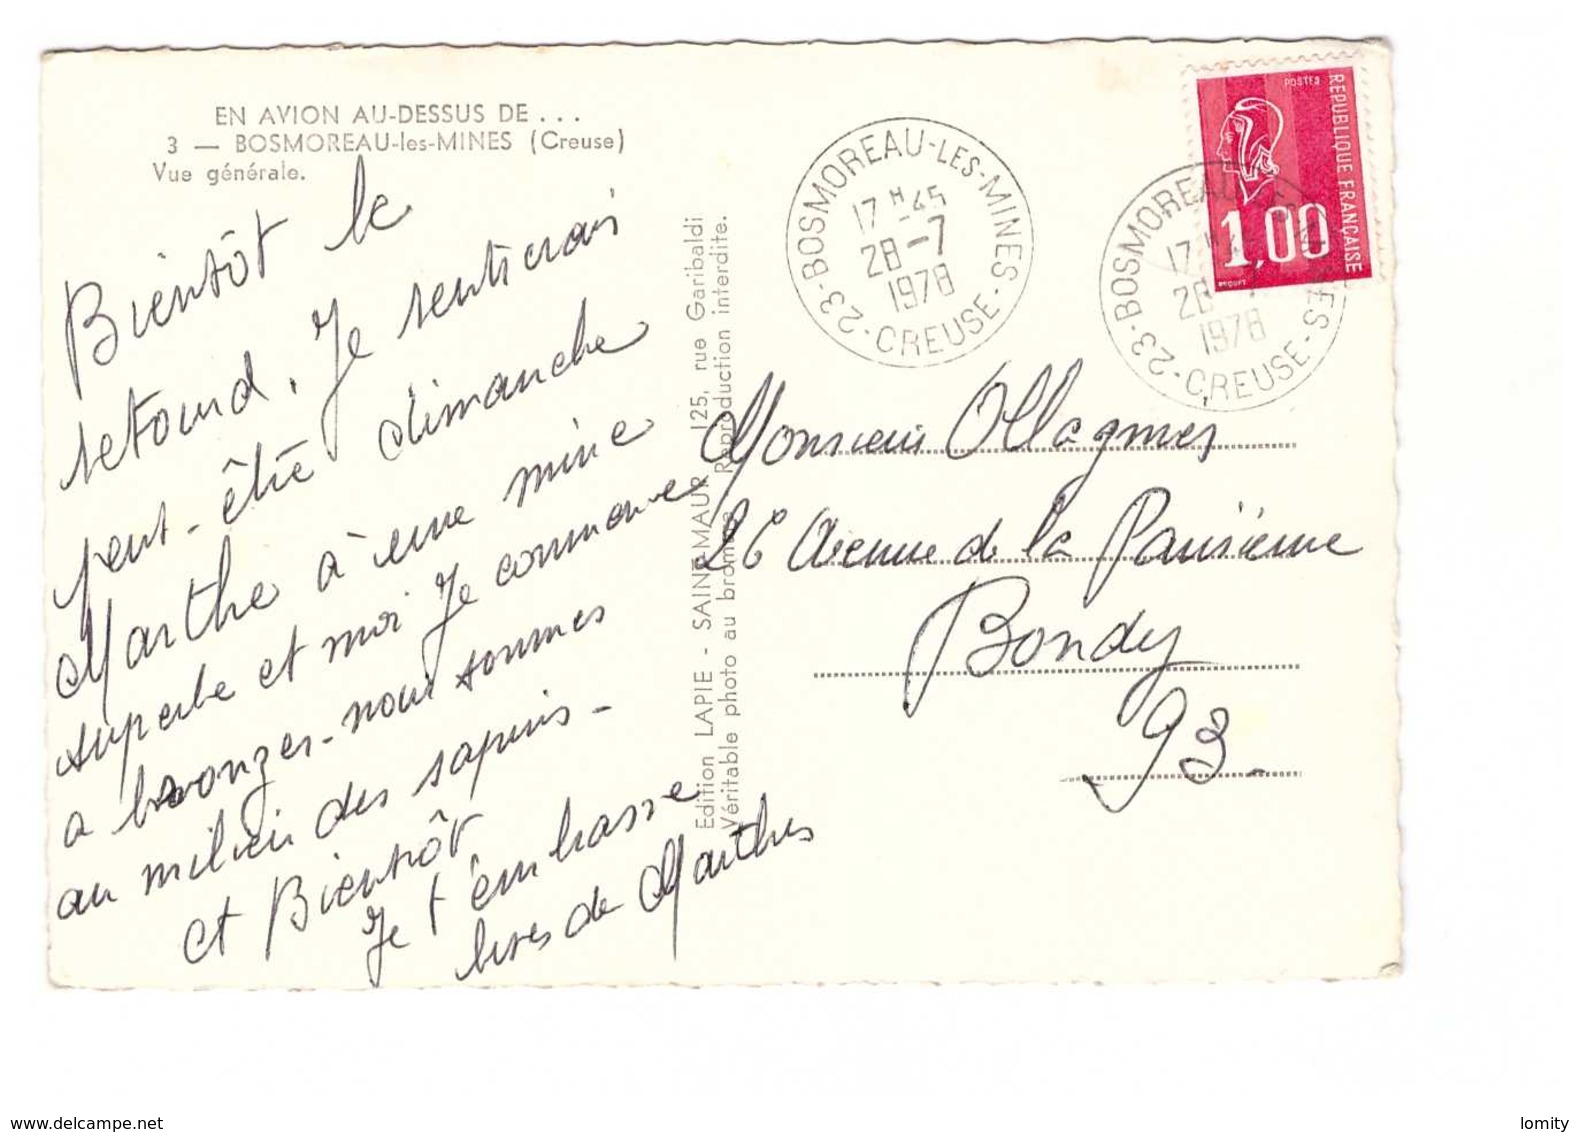 EN AVION AU-DESSUS DE ...
3 — BOSMOREAU-les-MINES (Creuse)
Vue générale.
Bientôt le
retourd. Je rentrerais
peut-être dimanche
Marthe à une mine
superbe et moi Je commence
a bronzer - nous sommes
au milieu des sapins -
et Bientôt
Je t'embrasse
bises de Marthes
Edition LAPIE - SAINT-MAUR 125, rue Garibaldi
Véritable photo au bromure Reproduction interdite.
23-BOSMOREAU-LES-MINES-CREUSE
17 H 45
28-7
1978
POSTES
REPUBLIQUE FRANÇAISE
1,00
BEQUET
23-BOSMOREAU-LES-MINES-CREUSE
17 H
28
1978
Monsieur Ollagmes
26 Avenue de la
Bondy
93-
www.delcampe.net
lomity